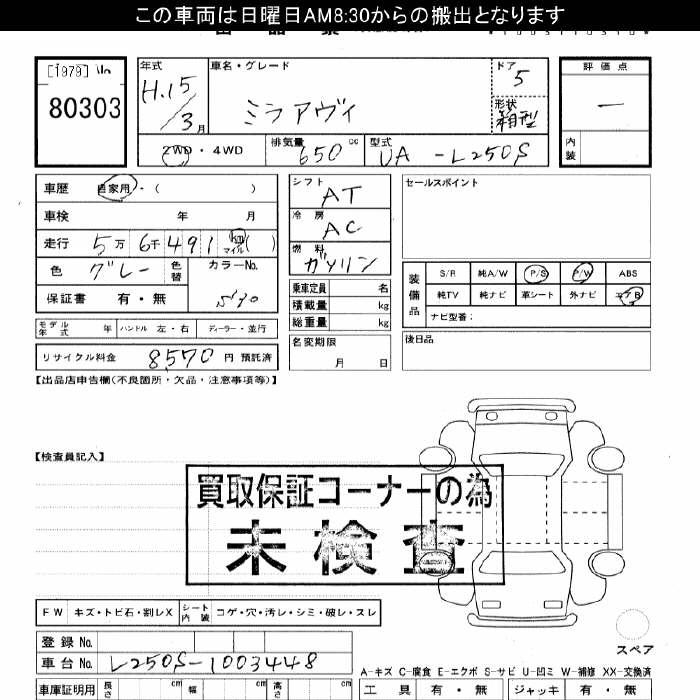 この車両は日曜日AM8:30からの搬出となります
[1979]
80303
年式 H.15/3月
車名・グレード ミラアヴィ
ドア 5
形状 箱型
評価点 —
内装
2WD・4WD
排気量 650cc
型式 UA-L250S
車歴 自家用・( )
車検 年 月
走行 5万6千491 km マイル( )
色 グレー 色替 カラーNo. S30
保証書 有・無
シフト AT
冷房 AC
燃料 ガソリン
乗車定員 名
積載量 kg
総重量 kg
セールスポイント
装備品 S/R 純A/W P/S P/W ABS
純TV 純ナビ 革シート 外ナビ エアB
ナビ型番:
モデル年式 年 ハンドル 左・右 ディーラー・並行
リサイクル料金 8570円 預託済
名変期限 月 日
後日品
【出品店申告欄(不良箇所・欠品・注意事項等)】
【検査員記入】
買取保証コーナーの為
未検査
FW キズ・トビ石・割レX シート内装 コゲ・穴・汚レ・シミ・破レ・スレ
スペア
登録No.
車台No. L250S-1003448
A-キズ C-腐食 E-エクボ S-サビ U-凹ミ W-補修 XX-交換済
車庫証明用 長さ cm 幅 cm 高さ cm
工具 有・無 ジャッキ 有・無